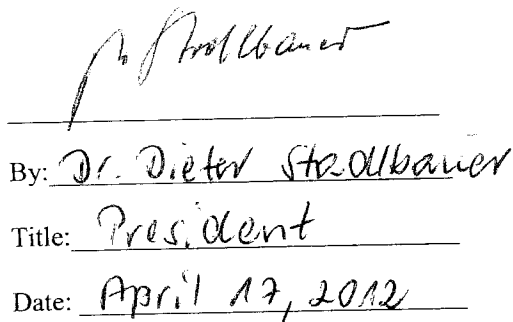 Dr. Stadlbauer
By: Dr. Dieter Stadlbauer
Title: President
Date: April 17, 2012